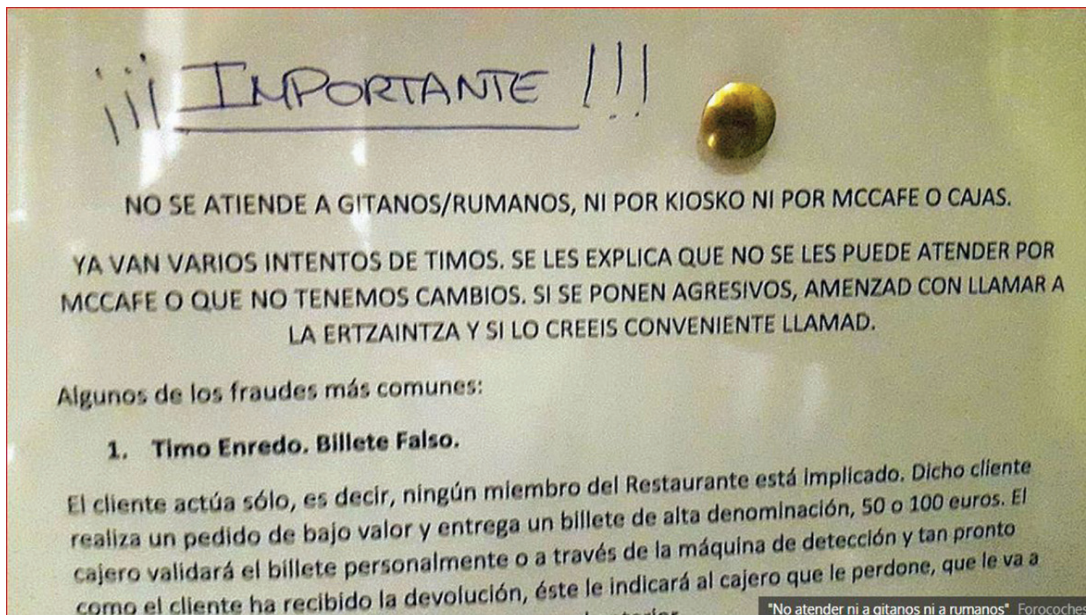 ¡¡¡ IMPORTANTE !!!
NO SE ATIENDE A GITANOS/RUMANOS, NI POR KIOSKO NI POR MCCAFE O CAJAS.
YA VAN VARIOS INTENTOS DE TIMOS. SE LES EXPLICA QUE NO SE LES PUEDE ATENDER POR
MCCAFE O QUE NO TENEMOS CAMBIOS. SI SE PONEN AGRESIVOS, AMENZAD CON LLAMAR A
LA ERTZAINTZA Y SI LO CREEIS CONVENIENTE LLAMAD.
Algunos de los fraudes más comunes:
1. Timo Enredo. Billete Falso.
El cliente actúa sólo, es decir, ningún miembro del Restaurante está implicado. Dicho cliente
realiza un pedido de bajo valor y entrega un billete de alta denominación, 50 o 100 euros. El
cajero validará el billete personalmente o a través de la máquina de detección y tan pronto
como el cliente ha recibido la devolución, éste le indicará al cajero que le perdone, que le va a
"No atender ni a gitanos ni a rumanos" Forocoches